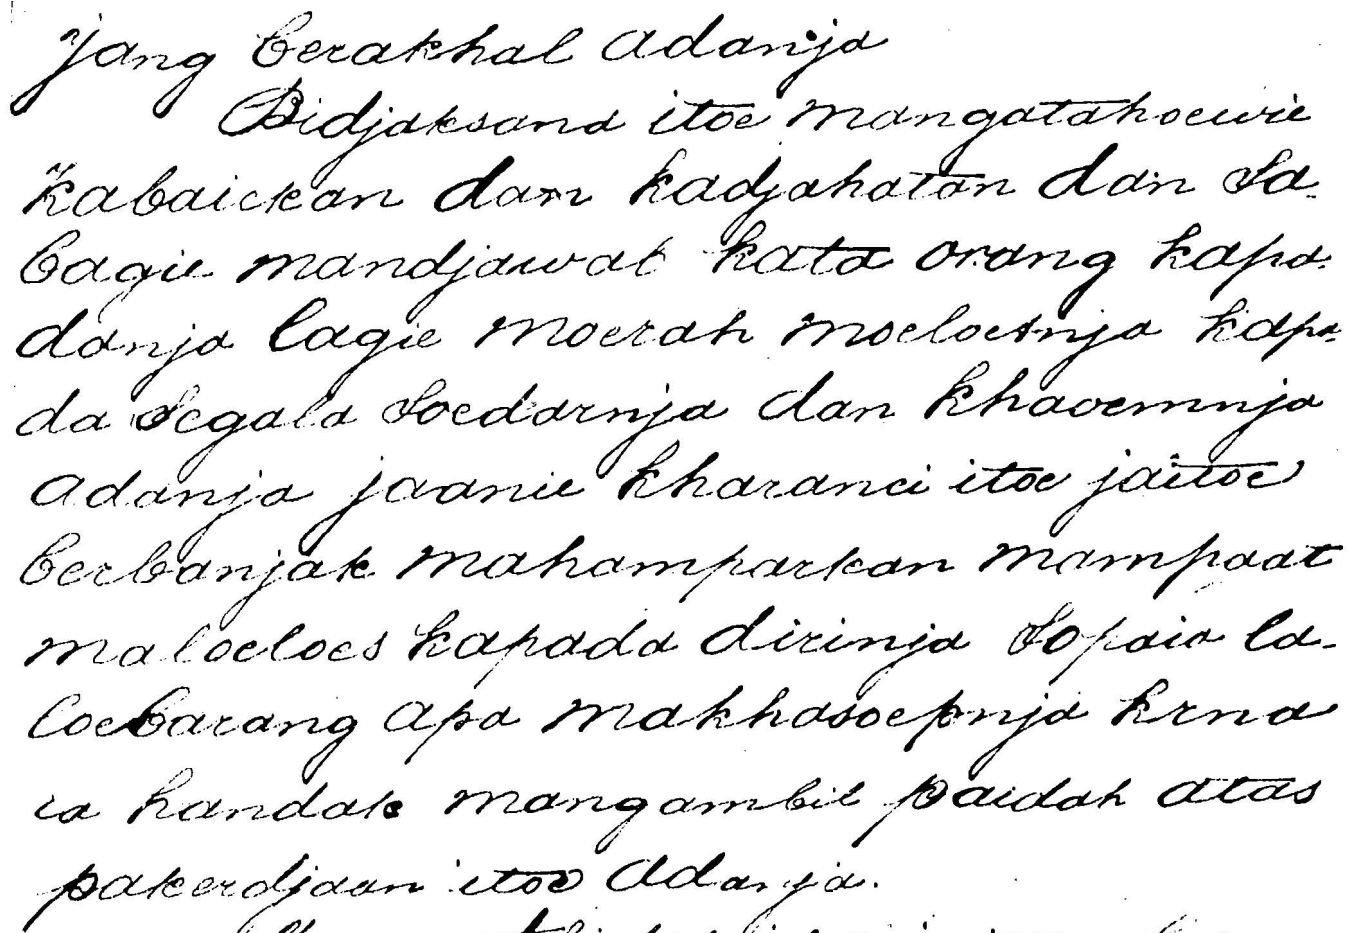 jang berakhal adanja
Bidjaksana itoe mangatahoewie
kabaickan dan kadjahatan dan sa-
bagie mandjawat kata orang kapa-
danja lagie moerah moeloetnja kapa-
da segala soedarnja dan khaoemnja
adanja jaanie kharanei itoe jaitoe
berbanjak mahamparkan mampaat
maloeloes kapada dirinja sopaia la-
loe barang apa makhasoepnja krna
ia handak mangambil paidah atas
pakerdjaan itoe adanja.